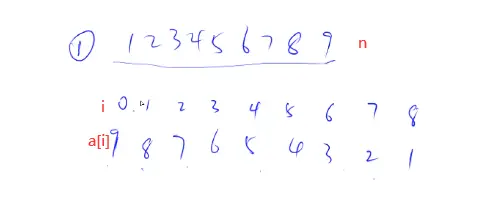 ① 1 2 3 4 5 6 7 8 9 n
i 0 1 2 3 4 5 6 7 8
a[i] 9 8 7 6 5 4 3 2 1